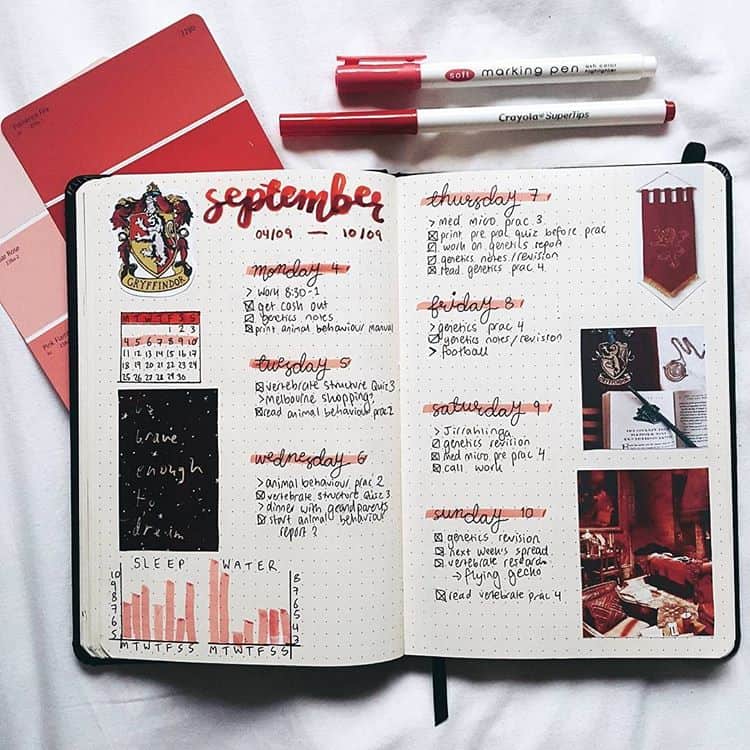 soft marking pen
Crayola® SuperTips
september
04/09 — 10/09
GRYFFINDOR
M T W T F S S
1 2 3
4 5 6 7 8 9 10
11 12 13 14 15 16 17
18 19 20 21 22 23 24
25 26 27 28 29 30
be
brave
enough
to
dream
monday 4
> work 8:30-1
get cash out
genetics notes
print animal behaviour manual
tuesday 5
vertebrate structure Quiz 3
> melbourne shopping?
read animal behaviour prac 2
wednesday 6
> animal behaviour prac 2
vertebrate structure Quiz 3
> dinner with grandparents
start animal behaviour
report ?
SLEEP
10
9
8
7
6
5
M T W T F S S
WATER
8
7
6
5
4
3
M T W T F S S
thursday 7
> med micro prac 3
print pre prac quiz before prac
work on genetics report
genetics notes/revision
read genetics prac 4
friday 8
> genetics prac 4
genetics notes/revision
> football
saturday 9
> Jirrahlinga
genetics revision
med micro pre prac 4
call work
sunday 10
genetics revision
next week's spread
vertebrate research
→ flying gecko
read vertebrate prac 4